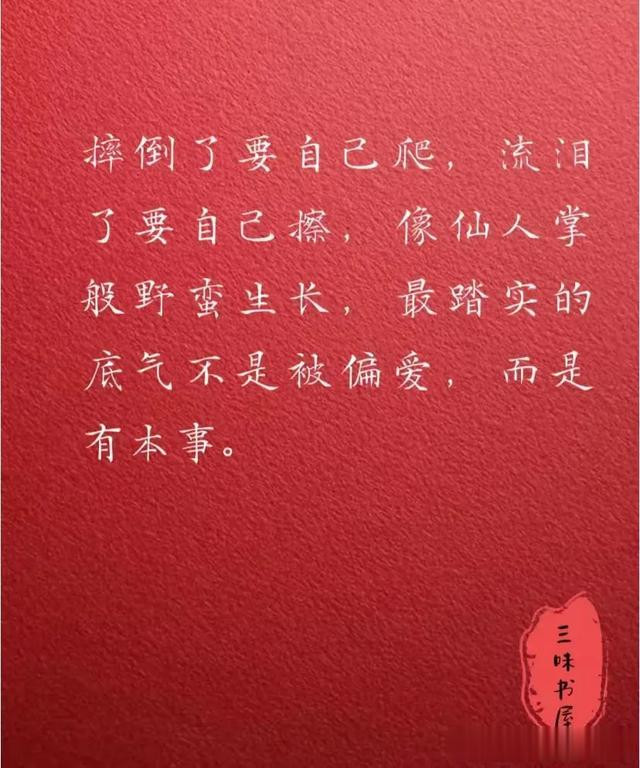 摔倒了要自己爬，流泪
了要自己擦，像仙人掌
般野蛮生长，最踏实的
底气不是被偏爱，而是
有本事。
三味书屋